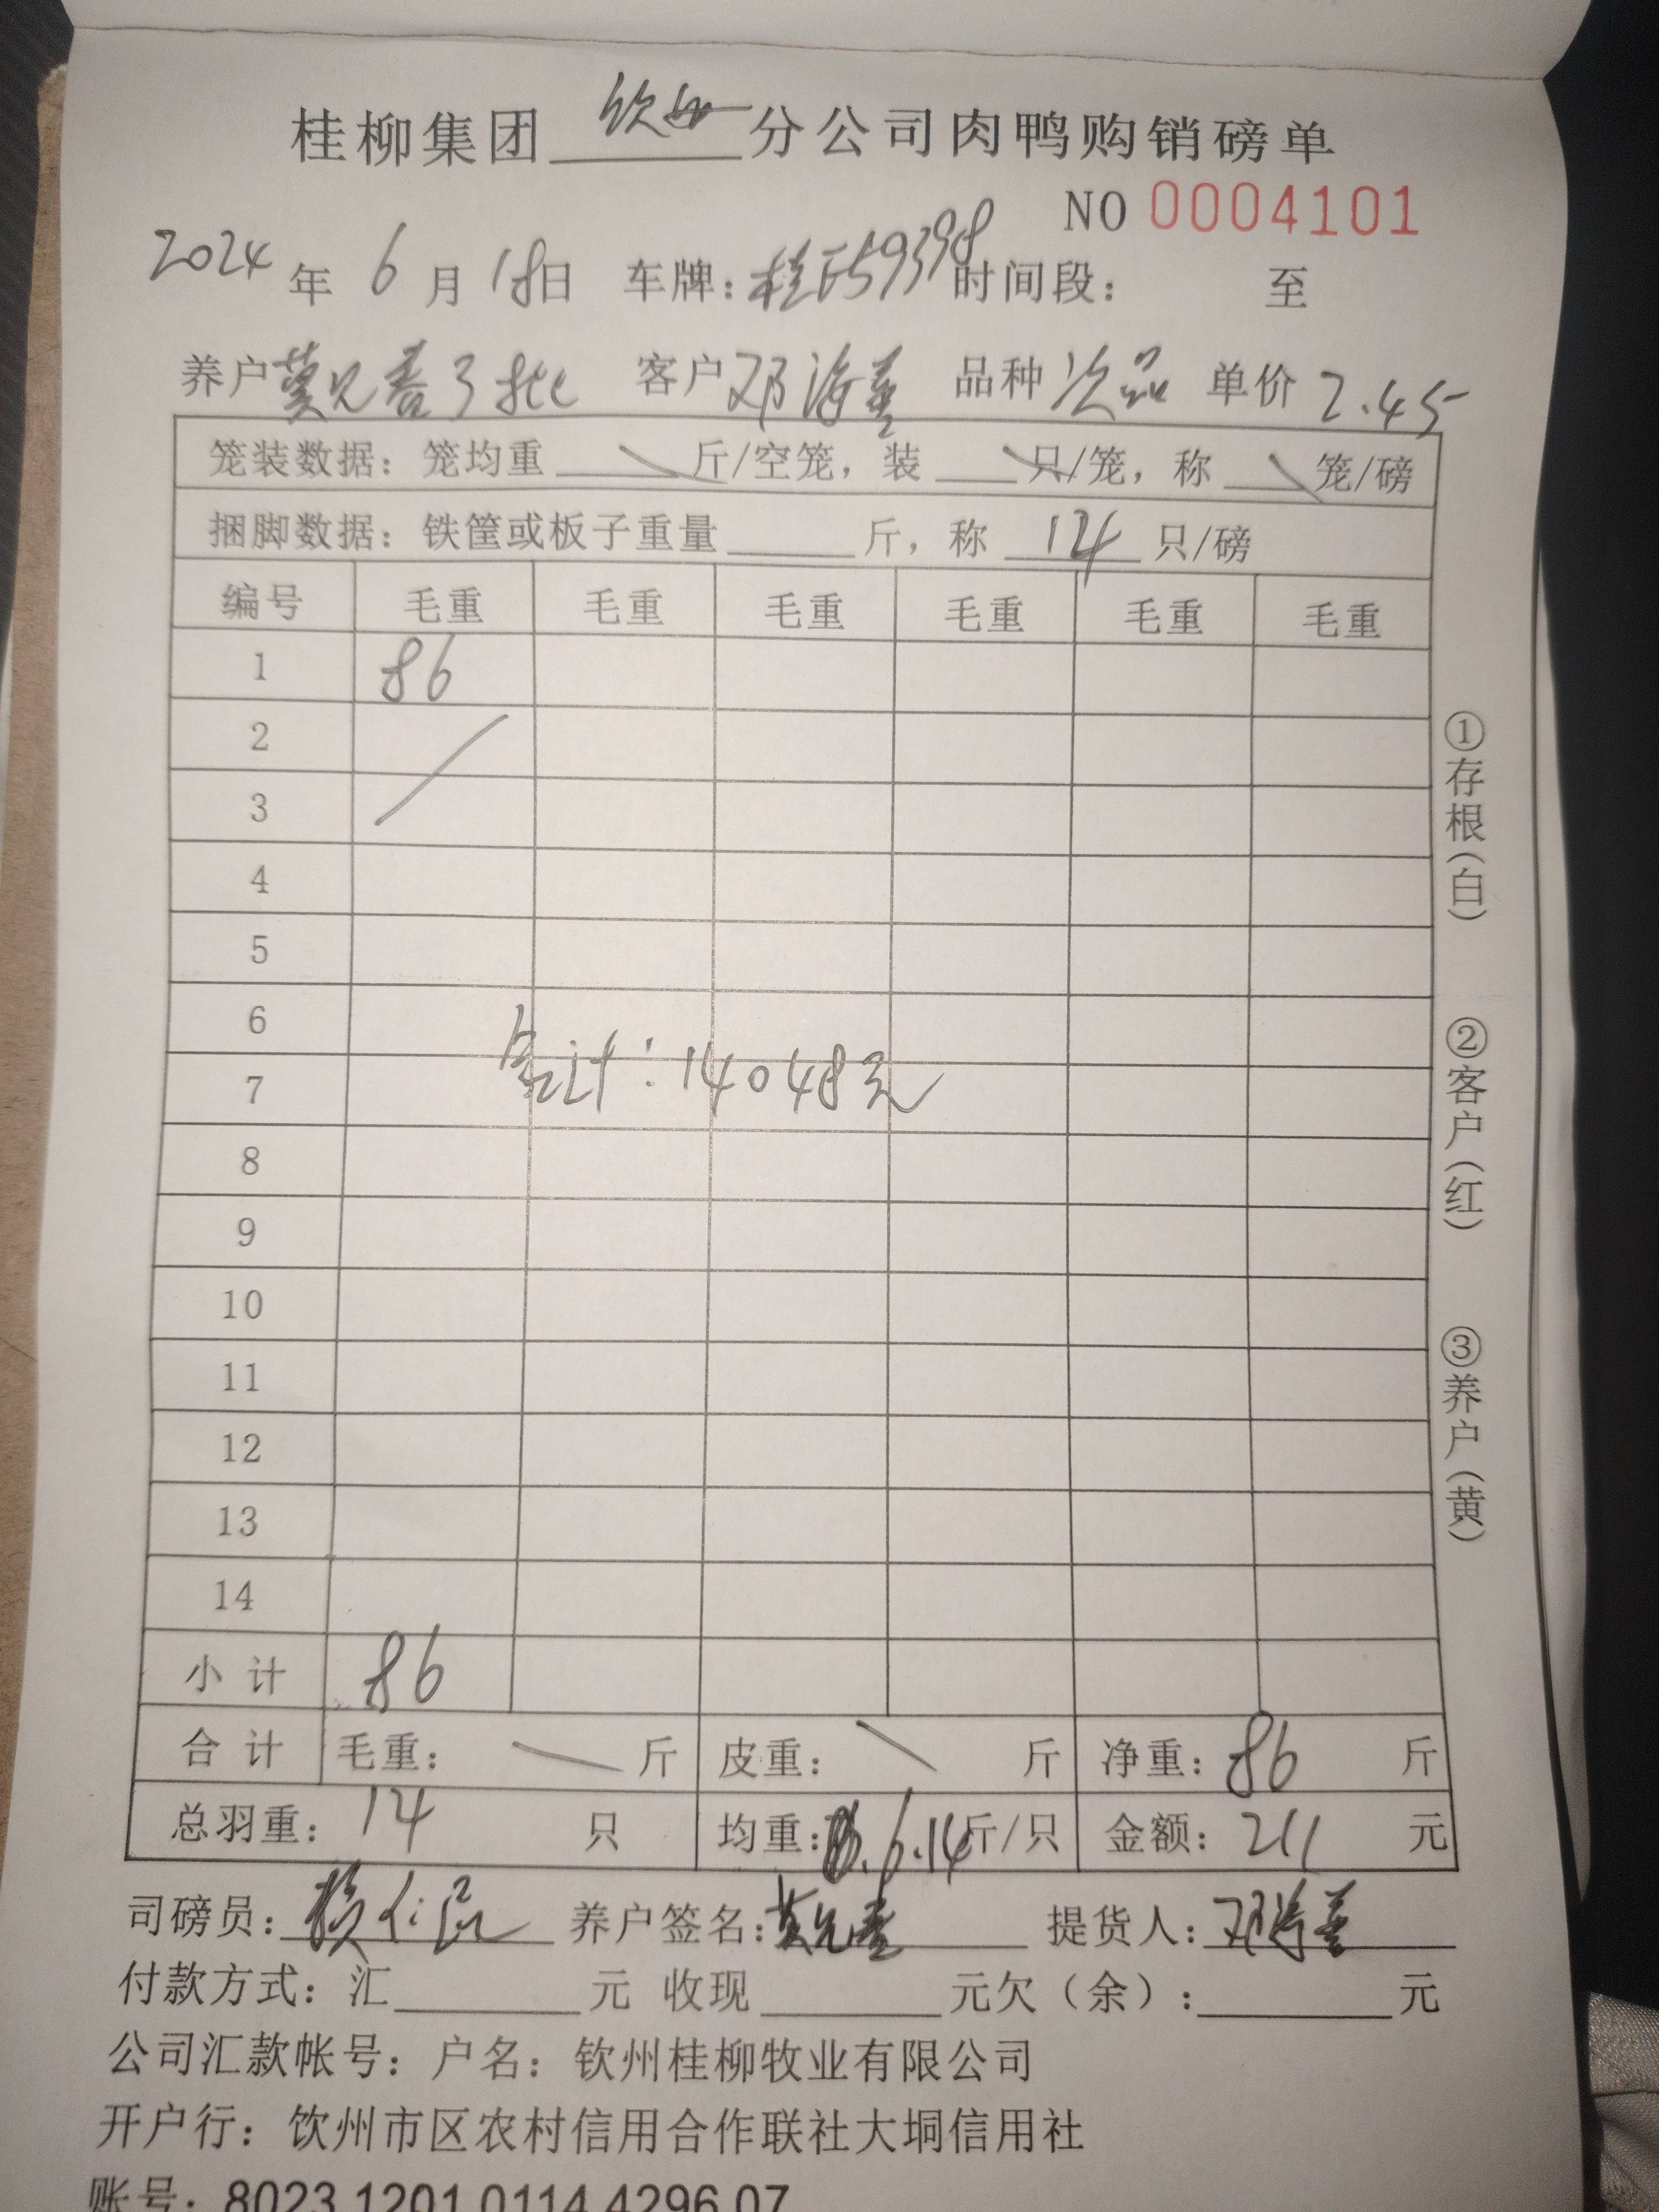 桂柳集团 钦州 分公司肉鸭购销磅单
NO 0004101
2024 年 6 月 18日 车牌：桂F59398 时间段： 至
养户 莫兄春3批 客户 邓海善 品种 次品 单价 2.45
笼装数据：笼均重 斤/空笼，装 只/笼，称 笼/磅
捆脚数据：铁筐或板子重量 斤，称 14 只/磅
编号 毛重 毛重 毛重 毛重 毛重 毛重
1 86
2
3
4
5
6
7
合计：14048元
8
9
10
11
12
13
14
小 计 86
合 计 毛重： 斤 皮重： 斤 净重：86 斤
总羽重：14 只 均重：6.14斤/只 金额：211 元
司磅员： 养户签名： 提货人：邓海善
付款方式：汇 元 收现 元欠（余）： 元
公司汇款帐号：户名：钦州桂柳牧业有限公司
开户行：饮州市区农村信用合作联社大垌信用社
账号：8023 1201 0114 4296 07
①存根（白）
②客户（红）
③养户（黄）